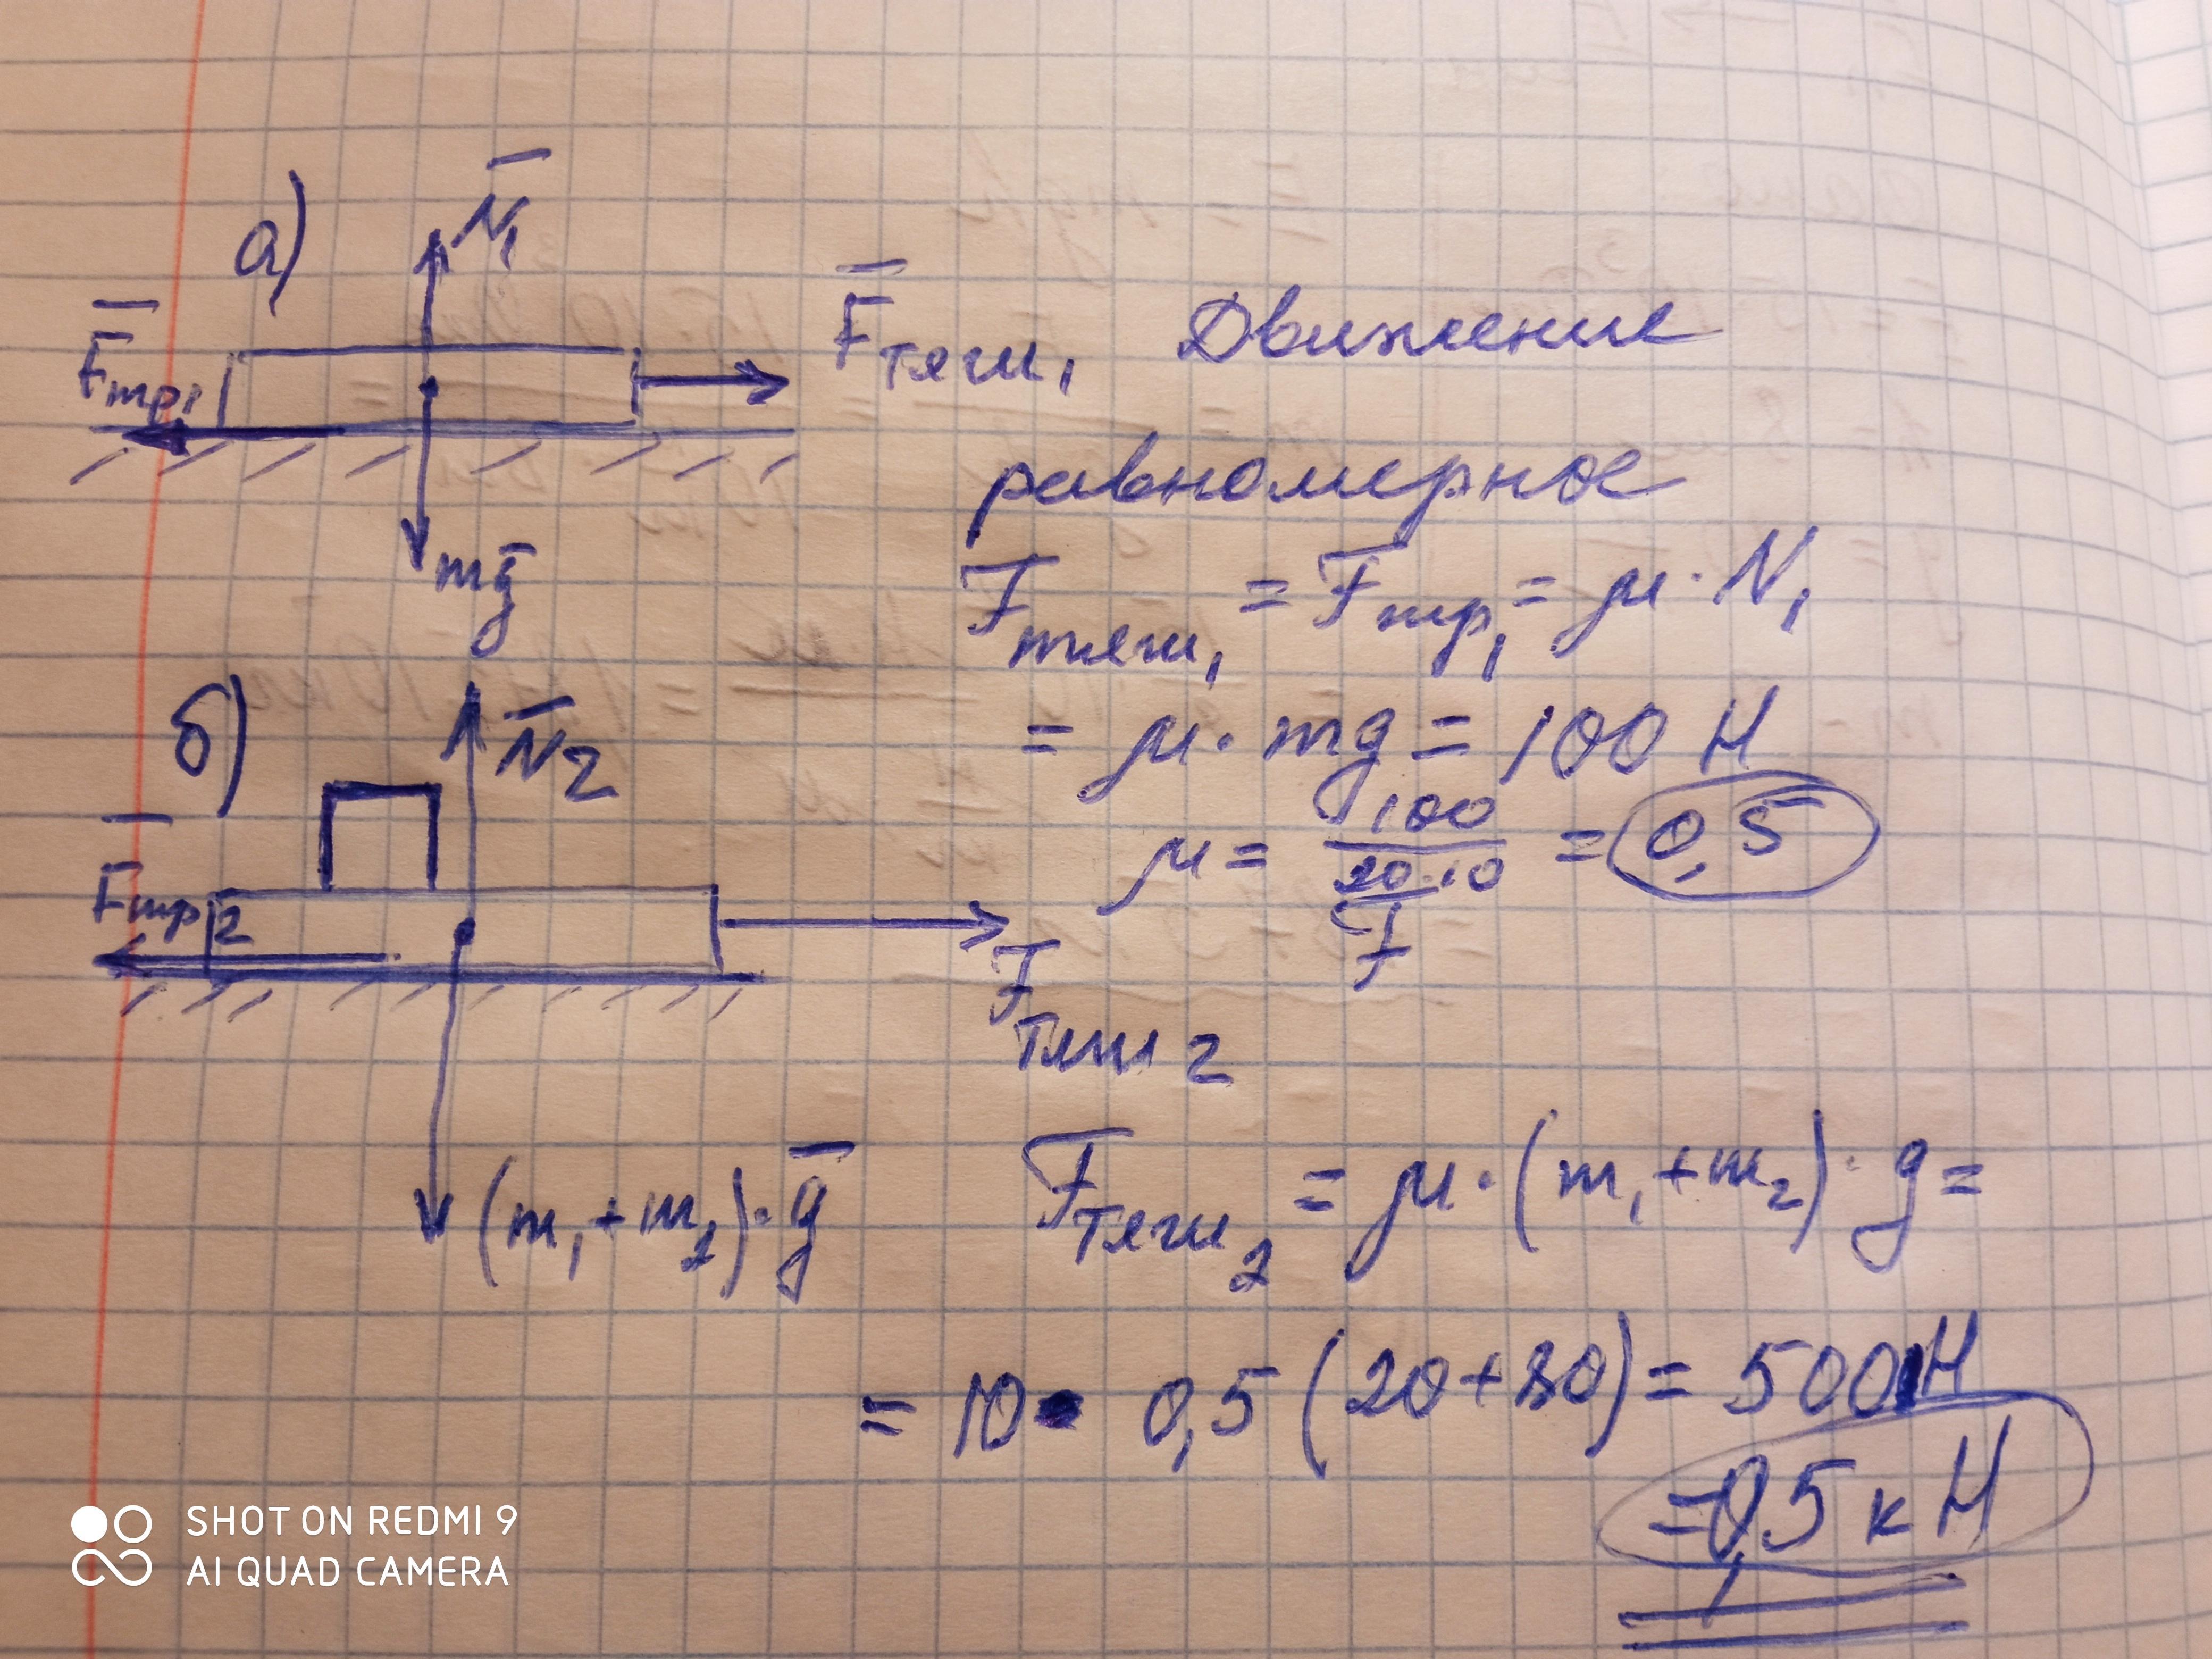 а)
N̅₁
F̅тр₁
F̅тяги₁
mg̅
Движение
равномерное
Fтяги₁ = Fтр₁ = μ · N₁
= μ · mg = 100 Н
μ = 100 / 20·10 = 0,5
б)
N̅2
F̅тр2
Fтяги 2
(m₁+m₂)·g̅
Fтяги₂ = μ·(m₁+m₂)·g =
= 10 · 0,5 (20+80) = 500 Н
= 0,5 кН
SHOT ON REDMI 9
AI QUAD CAMERA